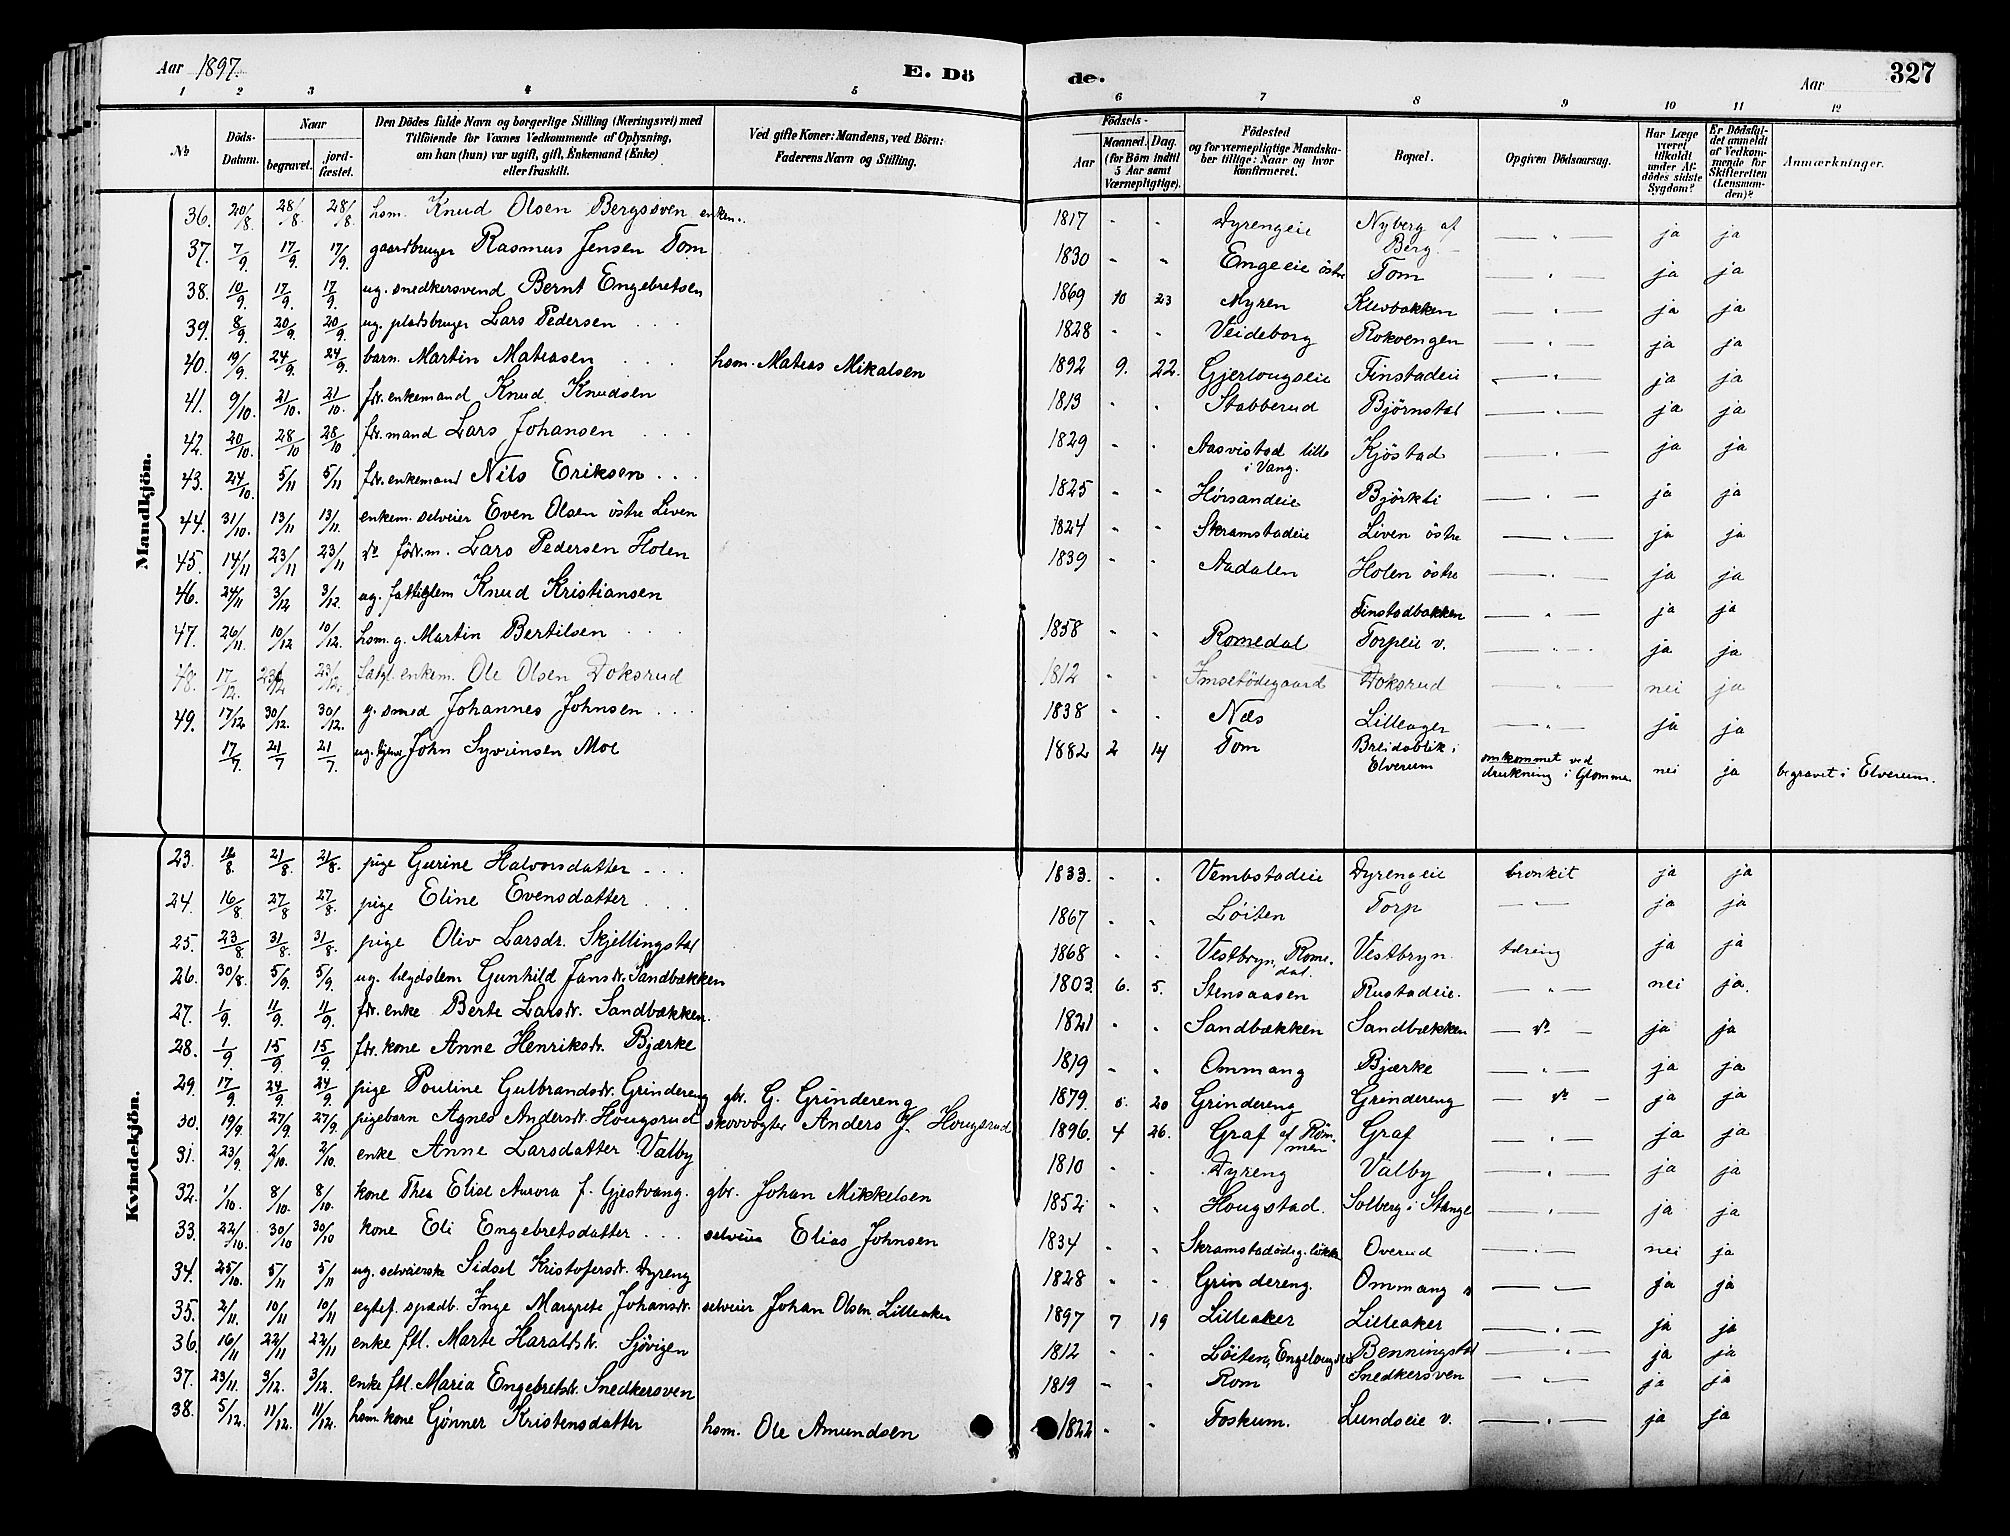 Aar 1897. E. Dö
de. Aar 327
1 2 3 4 5 6 7 8 9 10 11 12
№ Döds-Datum. Naar begravet. jord-fæstet. Den Dödes fulde Navn og borgerlige Stilling (Næringsvei) med Tilföiende for Voxnes Vedkommende af Oplysning, om han (hun) var ugift, gift, Enkemand (Enke) eller fraskilt. Ved gifte Koner: Mandens, ved Börn: Faderens Navn og Stilling. Födsels- Aar Maaned. Dag. (for Börn indtil 5 Aar samt Værnepligtige). Födested og for værnepligtige Mandskaber tillige: Naar og hvor konfirmeret. Bopæl. Opgiven Dödsaarsag. Har Læge været tilkaldt under Afdödes sidste Sygdom? Er Dödsfaldet anmeldt af Vedkommende for Skifteretten (Lensmanden)? Anmærkninger.
Mandkjön.
36. 20/8. 28/8 28/8. hsm. Knud Olsen Bergssven enkem. 1817 - - Dyrengeie Nyberg af Berg — " — ja ja
37. 7/9. 17/9. 17/9. gaardbruger Rasmus Jensen Tom 1830 - - Engeeie östre Tom — " — ja ja
38. 10/9. 17/9. 17/9. ug. snedkersvend Bernt Engebretsen 1869 10 23 Myren Klevbakken — " — ja ja
39. 8/9 20/9. 20/9. ug. pladsbruger Lars Pedersen 1828 - - Veideborg Rokvengen — " — ja ja
40. 19/9. 24/9. 24/9. barn. Martin Matiasen hsm. Matias Mikalsen 1892 9. 22. Gjerlougseie Finstadeie — " — ja ja
41. 9/10. 21/10. 21/10. fdr. enkemand Knud Knudsen 1813 - - Stabberud Björnstad — " — ja ja
42. 20/10. 28/10 28/10 fdr. mand Lars Johansen 1829 - - Aasvistad lille i Vang. Kjöstad — " — ja ja
43. 24/10. 5/11 5/11 fdr. enkemand Nils Eriksen 1825 - - Hörsandeie Björkli — " — ja ja
44. 31/10. 13/11 13/11. enkem. selveier Even Olsen östre Liven 1824 - - Skramstadeie Liven östre — " — ja ja
45. 14/11 23/11 23/11 do födr. m. Lars Pedersen Holen 1839 - - Aadalen Holen östre — " — ja ja
46. 24/11 3/12 3/12. ug. fattiglem Knud Kristiansen Finstadbakken — " — ja ja
47. 26/11 10/12 10/12. hsm. g. Martin Bertilsen 1858 - - Romedal Torpeie v. — " — ja ja
48. 17/12. 23/12 23/12. enkem. Ole Olsen Doksrud 1812 - - Imsetödegaard Doksrud — " — nei ja
49. 17/12 30/12. 30/12. g. smed Johannes Johnsen 1838 - - Næs Lilleager — " — ja ja
17/7. 21/7 21/7. ug. John Syvrinsen Moe 1882 2 14 Tom Breidablik i Elverum omkommet ved drukning i Glommen nei ja begravet i Elverum.
Kvindekjön.
23. 16/8. 21/8. 21/8. pige Gurine Halvorsdatter 1833. - - Vembstadeie Dyrengeie bronkit ja ja
24. 16/8. 27/8 27/8. pige Eline Evensdatter 1867 - - Löiten Torp — " — ja ja
25. 23/8. 31/8. 31/8. pige Oliv Larsdr. Skjellingstad 1868 - - Vestbryn, Romedal. Vestbryn. tæring ja ja
26. 30/8. 5/9. 5/9. ug. lægdslem Gunhild Jansdr. Sandbækken 1803. 6. 5. Stensaasen Rustadeie. — " — nei ja.
27. 1/9. 11/9. 11/9. fdr. enke Berte Larsdr. Sandbækken. 1821 - - Sandbækken Sandbækken — do — ja ja
28. 1/9. 15/9. 15/9. fdr. kone Anne Henriksdr. Bjærke 1819 - - Ommang Bjærke — " — ja ja
29. 17/9. 24/9. 24/9. pige Pouline Gulbrandsdr. Grindereng gbr. G. Grindereng 1879. 5. 20 Grindereng Grindereng — do — ja ja
30. 19/9. 27/9. 27/9. pigebarn Agnes Andersdr. Hougsrud skovvogter Anders J. Hougsrud 1896. 4 26. Graf af Römmen Graf — " — ja ja
31. 23/9. 2/10. 2/10. enke Anne Larsdatter Valby 1810 - - Dyreng Valby — " — ja ja
32. 1/10. 8/10. 8/10. kone Thea Elise Aurora f. Gjestvang. gbr. Johan Mikkelsen 1852. - - Hougstad. Solberg i Stange — " — ja ja
33. 22/10. 30/10 30/10 kone Eli Engebretsdatter selveier Elias Johnsen 1834 - - Skramstadödeg. lökke Overud — " — nei ja
34. 25/10. 5/11 5/11 ug. selveierske Sidsel Kristofersdr. Dyreng 1828 - - Grindereng. Ommang — " — ja ja
35. 2/11. 10/11 10/11 egtef. spædb. Inge Margrete Johansdr. selveier Johan Olsen Lilleaker 1897 7 19 Lilleaker Lilleaker — " — ja ja
36. 16/11 22/11 22/11 enke ftl. Marte Haraldsdr. Sjövigen 1812 - - Löiten, Benningstad — " — ja ja
37. 23/11. 3/12. 3/12. enke ftl. Maria Engebretsdr. Snedkersven 1819 - - Rom Snedkersven — " — ja ja
38. 5/12. 11/12. 11/12. hsm. kone Gönner Kristensdatter hsm. Ole Amundsen 1822 - - Toskum. Lundseie v. — " — ja ja